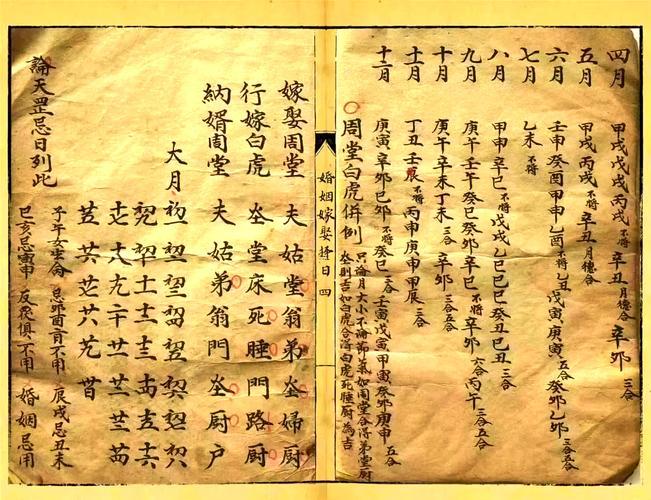 四月 甲戌戊戌丙戌不将 辛丑月德合 辛卯三合
五月 甲戌丙戌不将 辛丑月德合
六月 壬申癸酉甲申乙酉不将 乙丑戊寅庚寅五合 癸卯乙卯三合五合
七月 乙未不将
八月 甲申辛巳不将 戊戌乙巳己巳癸丑己丑三合
九月 庚午壬午癸巳癸卯辛巳不将 六合丙午三合五合
十月 庚午辛未丁未三合 辛卯三合五合
十一月 丁丑壬辰不将 丙申庚申甲辰三合
十二月 庚寅辛卯己卯不将 癸巳三合 壬寅戊寅甲寅癸卯庚申五合
周堂白虎併例 只論月大小不論節氣如周堂合得弟堂厨
灶則吉如白虎合得白虎死睡厨為吉
婚姻嫁娶擇日四
嫁娶周堂 夫姑堂翁弟灶婦厨
行嫁白虎 灶堂床死睡門路厨
納婿周堂 夫姑弟翁門灶厨户
大月 初一初二初三初四初五初六初七初八
初九初十十一十二十三十四十五十六
十七十八十九二十廿一廿二廿三廿四
廿五廿六廿七廿八廿九三十
論天罡忌日列此
子午女生命 忌卯酉百不用 辰戌忌丑未
巳亥忌寅申 俱不用 婚姻忌用